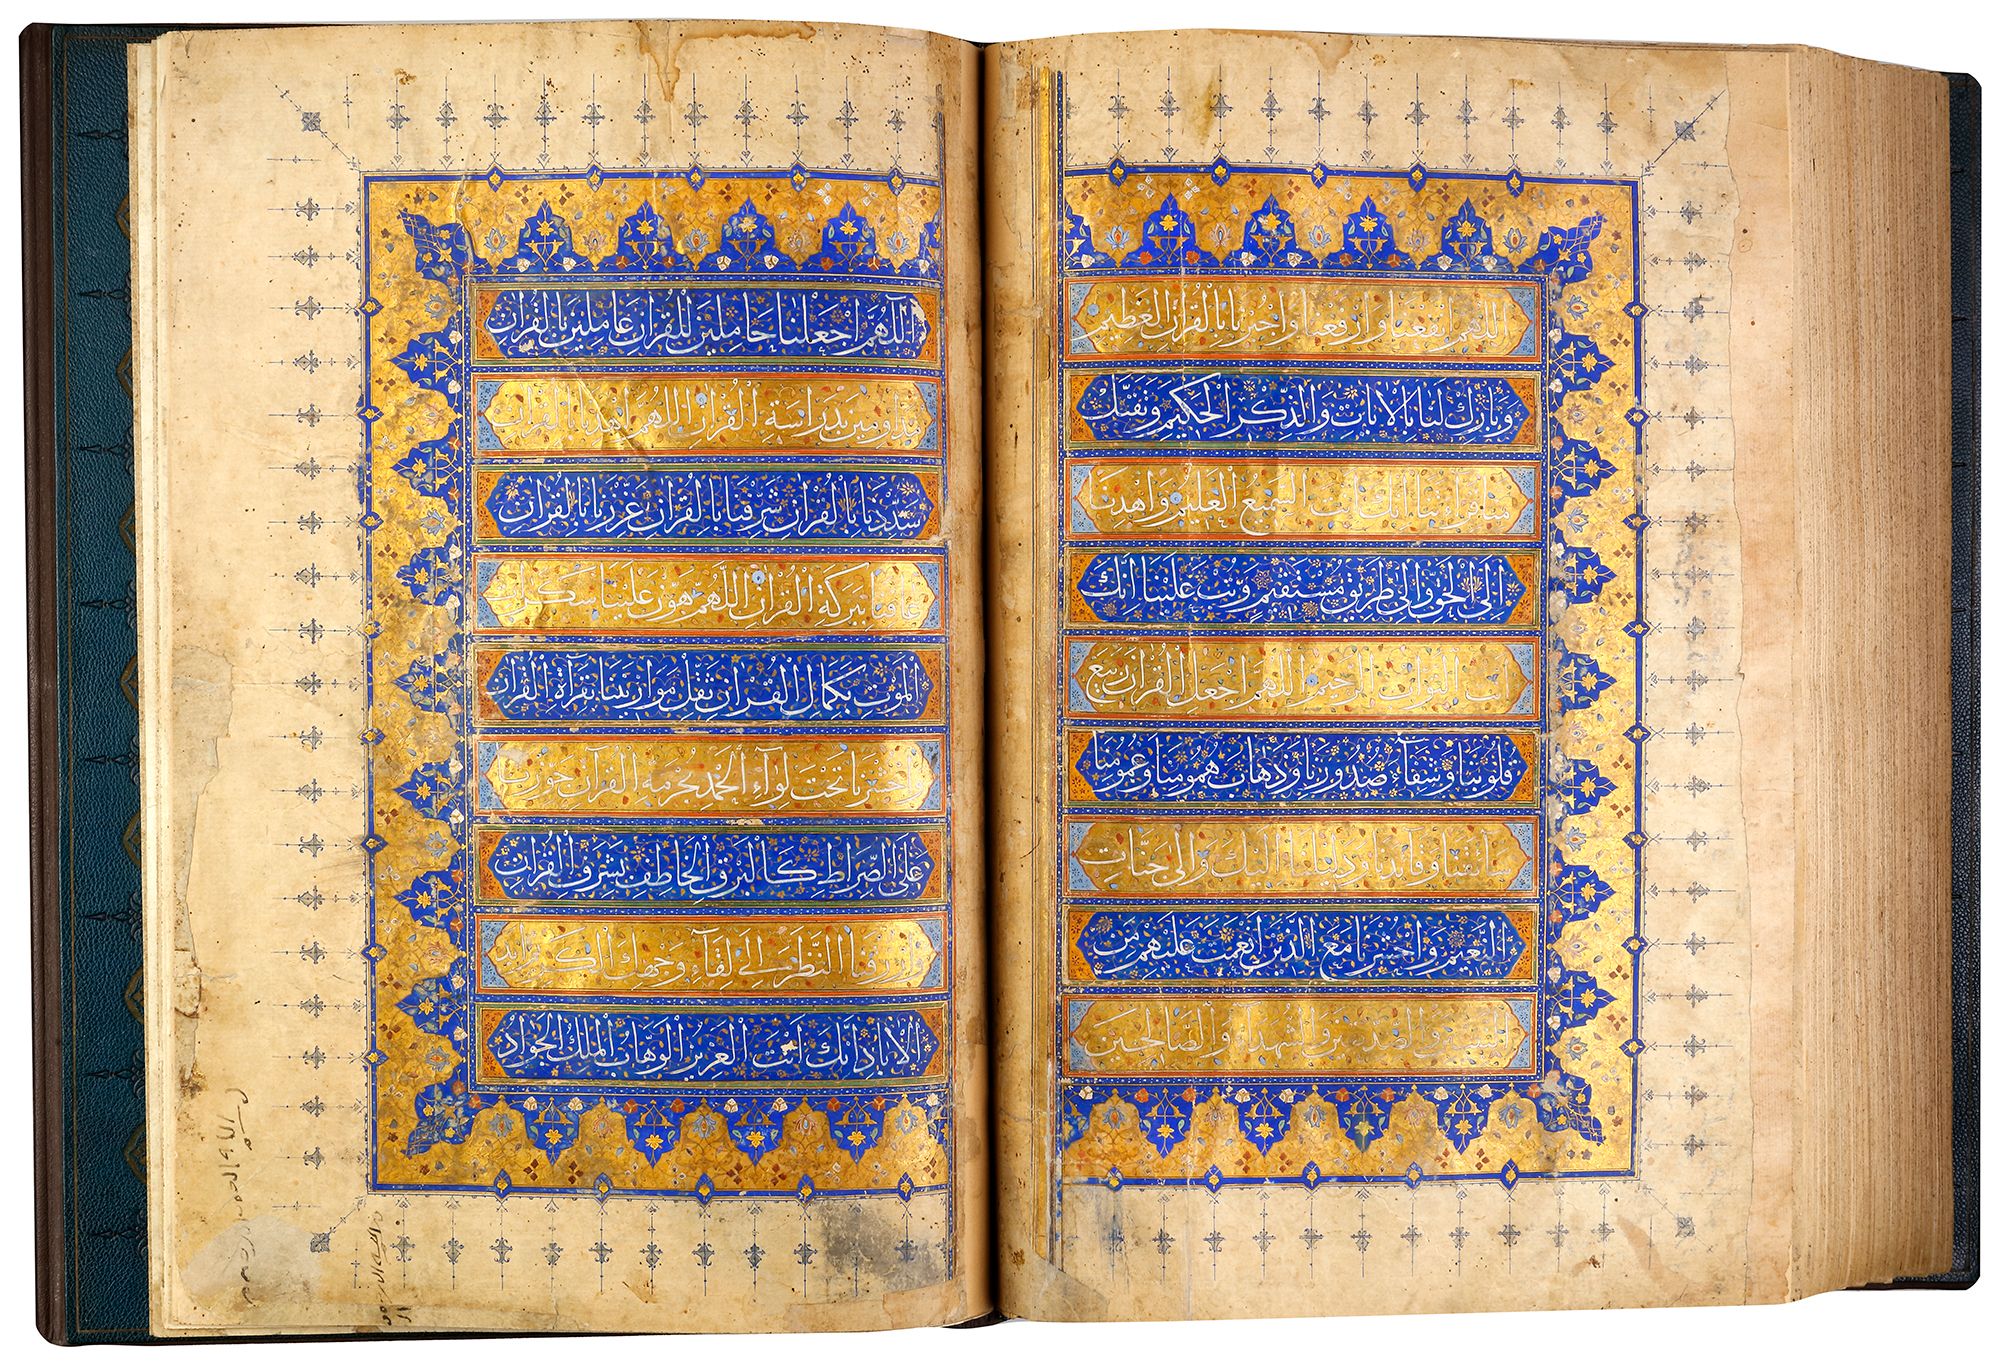 اللهم انفعنا وارفعنا واجبرنا بالقرآن العظيم
وبارك لنا بالايات والذكر الحكيم وتقبل
منا قراءتنا انك انت السميع العليم واهدنا
الى الحق والى طريق مستقيم وتب علينا انك
انت التواب الرحيم اللهم اجعل القرآن ربيع
قلوبنا وشفآء صدورنا وذهاب همومنا وغمومنا
سآئقنا وقآئدنا ودليلنا اليك والى جنات
النعيم واحشرنا مع الذين انعمت عليهم من
النبيين والصديقين والشهدآء والصالحين
اللهم اجعلنا حاملين للقران عاملين بالقران
مداومين بدراسة القران اللهم اهدنا بالقران
سددنا بالقران شرفنا بالقران عززنا بالقران
عافنا ببركة القران اللهم هون علينا سكرات
الموت بكمال القران ثقل موازيننا بقرآة القران
واحشرنا تحت لوآء الحمد بحرمة القرآن جوزنا
على الصراط كالبرق الخاطف بشرف القران
وارزقنا النظر الى لقآء وجهك الكريم ابد
الاباد انك انت العزيز الوهاب الملك الجواد